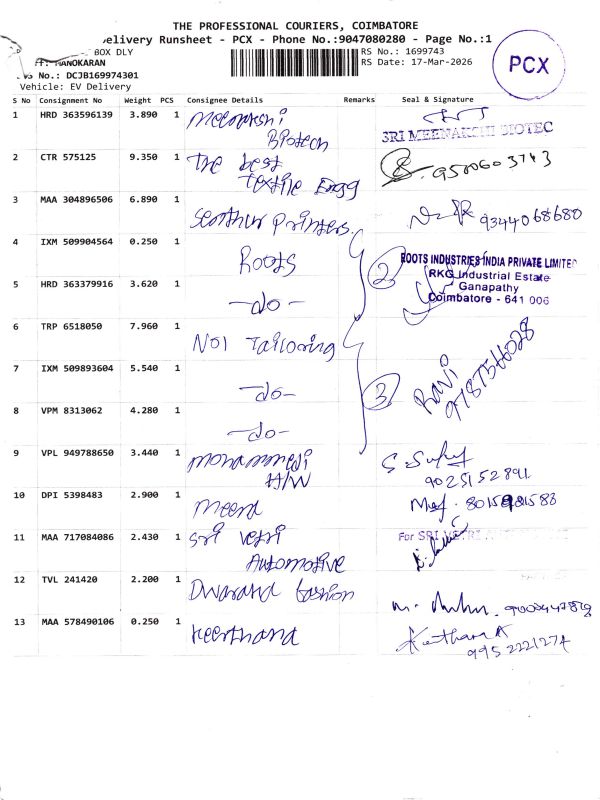 THE PROFESSIONAL COURIERS, COIMBATORE
Delivery Runsheet - PCX - Phone No.:9047080280 - Page No.:1
BOX DLY
RS No.: 1699743
MANOKARAN
RS Date: 17-Mar-2026
No.: DCJB169974301
Vehicle: EV Delivery
PCX
S No Consignment No Weight PCS Consignee Details Remarks Seal & Signature
1 HRD 363596139 3.890 1 Meenakshi
Biotech
SRI MEENAKSHI BIOTEC
2 CTR 575125 9.350 1 The best
textile Engg
9500603743
3 MAA 304896506 6.890 1 Senthur Printers
9344068680
4 IXM 509904564 0.250 1 Roots
2
ROOTS INDUSTRIES INDIA PRIVATE LIMITED
RKG Industrial Estate
Ganapathy
Coimbatore - 641 006
5 HRD 363379916 3.620 1 -do-
6 TRP 6518050 7.960 1 No1 Tailooring
7 IXM 509893604 5.540 1 -do-
3
Ravi
9787546028
8 VPM 8313062 4.280 1 -do-
9 VPL 949788650 3.440 1 Mohammedi
H/W
9025152891
10 DPI 5398483 2.900 1 Meera
8015981583
11 MAA 717084086 2.430 1 Sri Vetri
Automotive
For SRI VETRI
12 TVL 241420 2.200 1 Dwaraka fashion
13 MAA 578490106 0.250 1 Keerthana
Keerthana K
9952221274